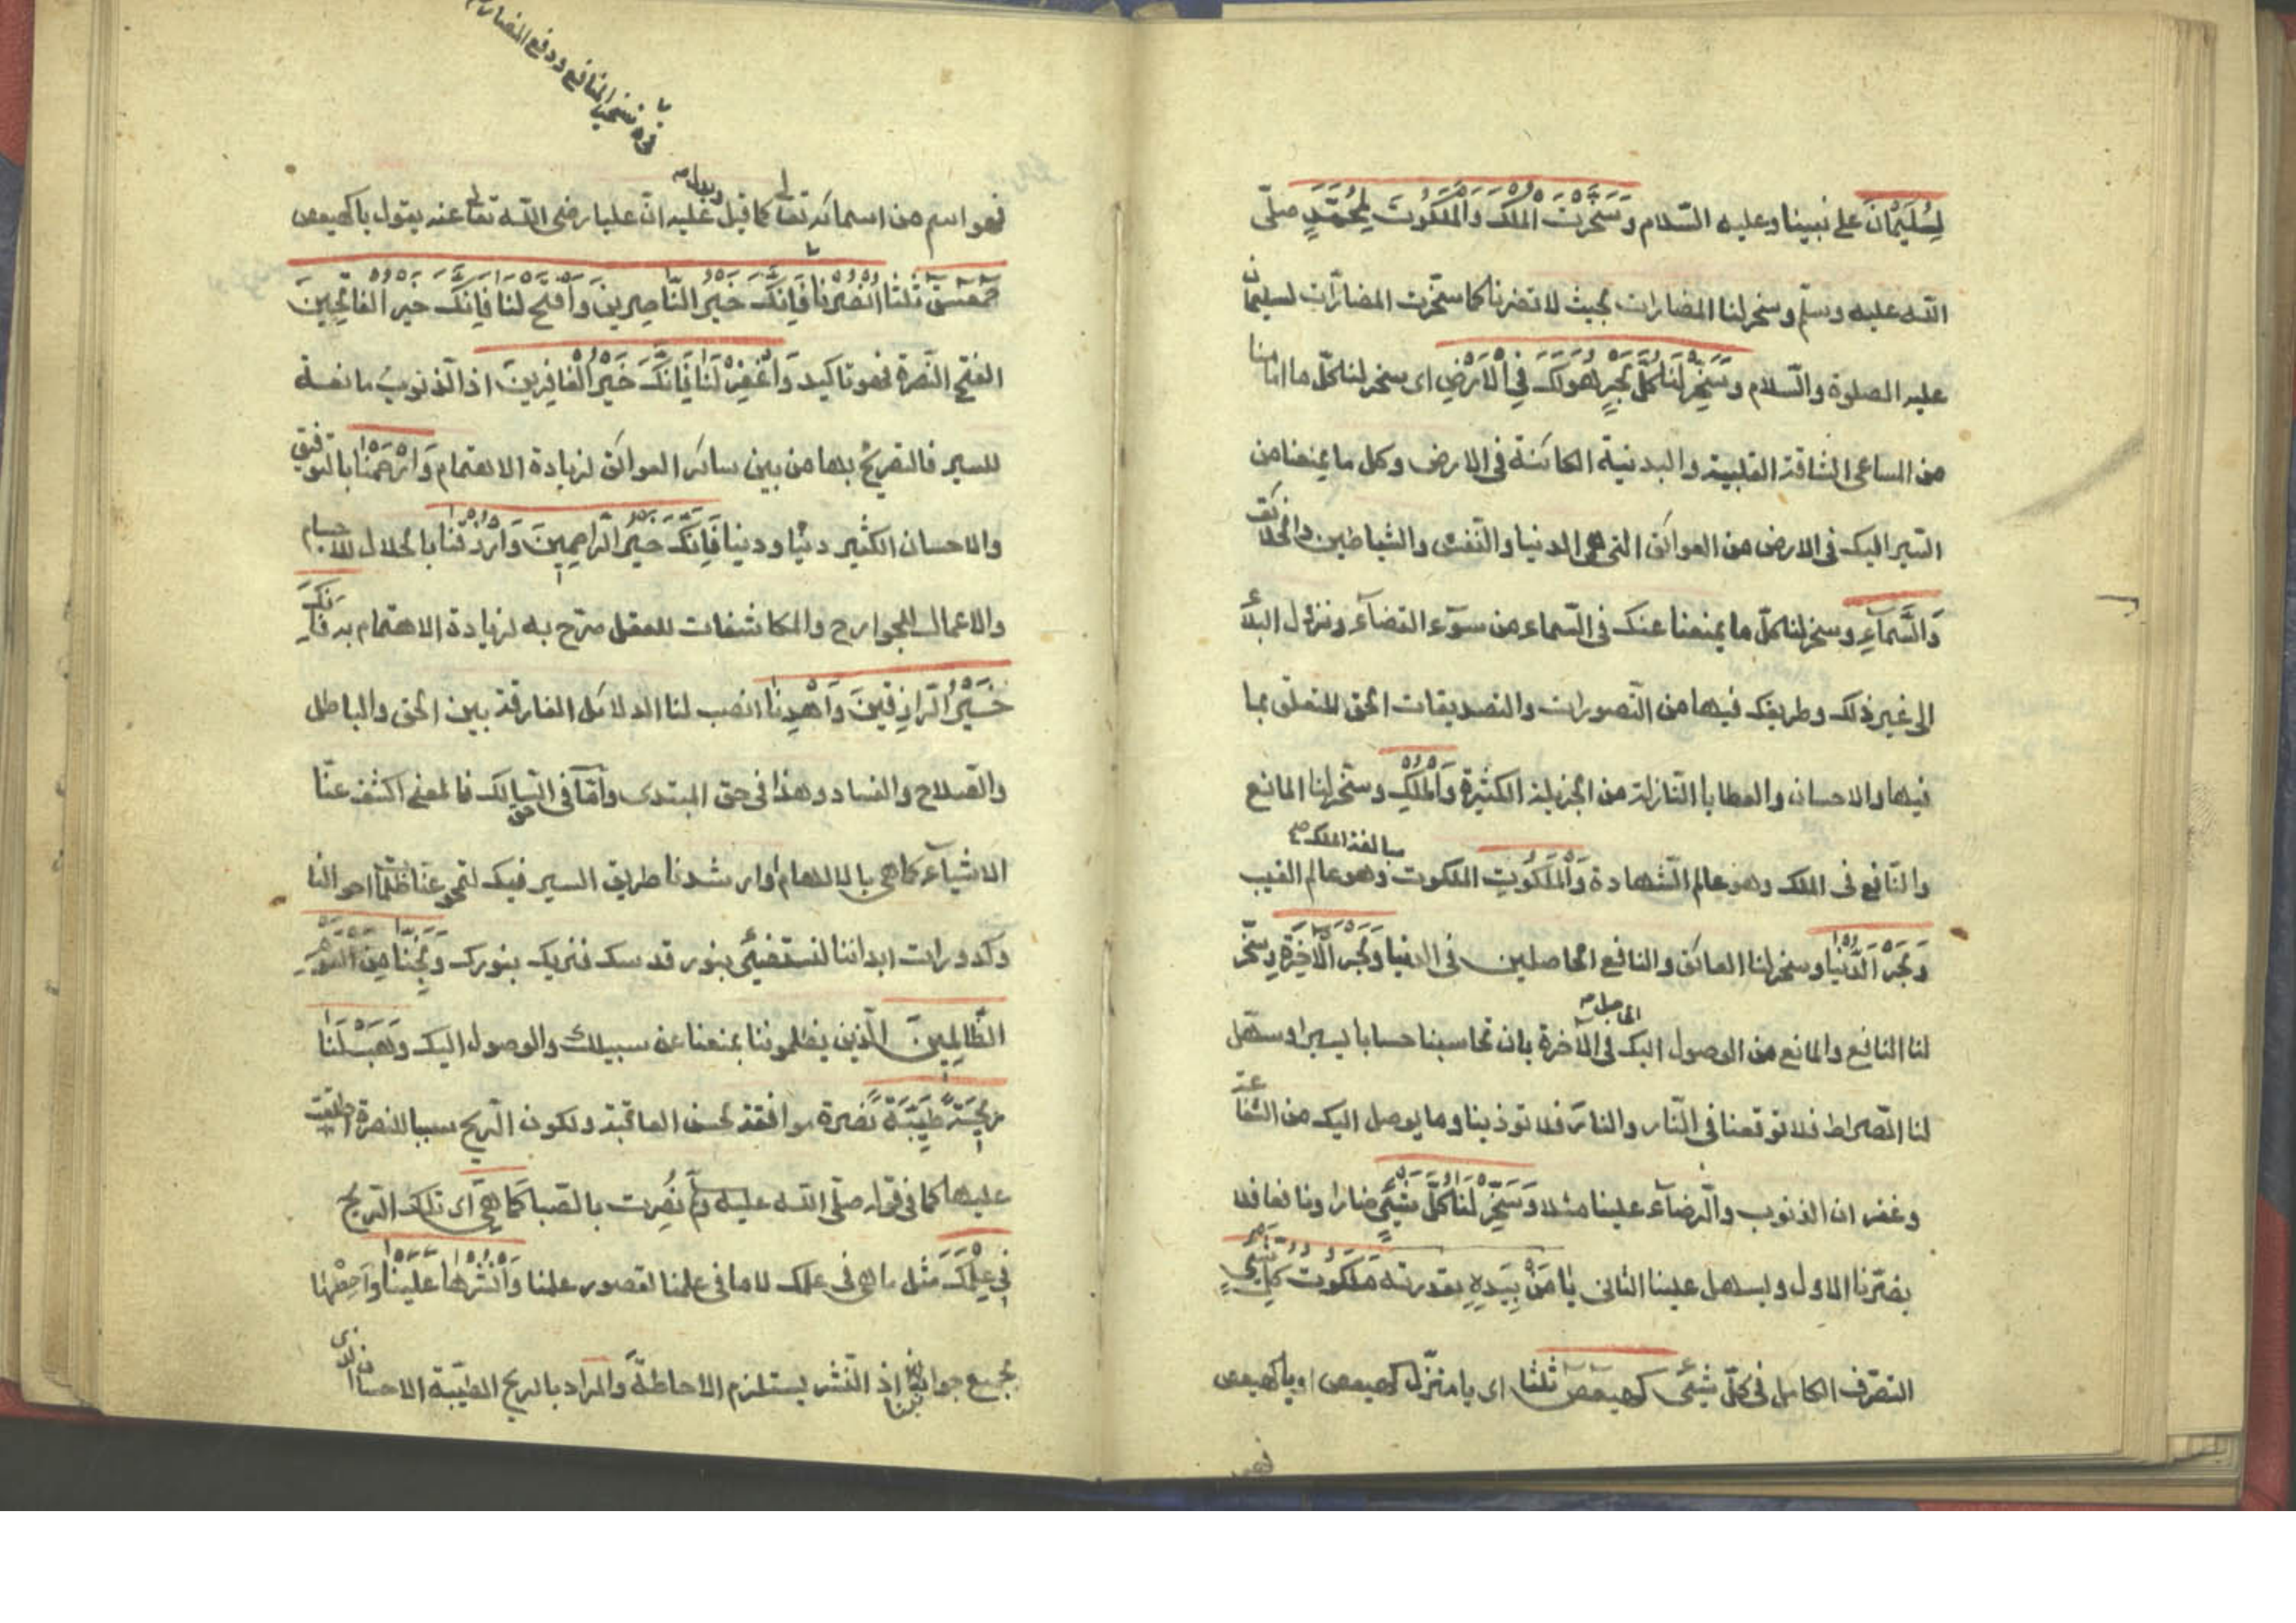 لِسُلَيْمٰانَ على نبينا وعليه السّلام وَسَخَّرْتَ الْمُلْكَ وَالْمَلَكُوتَ لِمُحَمَّدٍ صلّى
اللّه عليه وسلّم وسخر لنا المضارات بحيث لا تضرنا كما سخّرت المضارّات لسليمان
عليه الصلوة والسّلام وَسَخِّرْ لَنَا كُلَّ بَحْرٍ هُوَ لَكَ فِي الْاَرْضِ اى سخر لنا كلّ ما امامنا
من المساعى الشاقة القلبية والبدنية الكائنة فى الارض وكل ما يمنعنا من
السّير اليك فى الارض من العوائق التى هى الدنيا والنّفس والشياطين والخلائق
وَالسَّمآءِ وسخر لنا كلّ ما يمنعنا عنك فى السّماء من سوء القضآء ونزول البلاء
الى غير ذلك وطريقك فيها من التّصورات والتصديقات الحق المتعلق بما
فيها والاحسان والعطايا النّازلة من الجزيلة الكثيرة وَالْمُلْكِ وسخّر لنا المانع
والنّافع فى الملك وهو عالم الشّهادة وَالْمَلَكُوتِ الملكوت مبالغة الملك صح وهو عالم الغيب
وَبَحْرَ الدُّنْيٰا وسخر لنا العائق والنافع الحاصلين فى الدنيا وَبَحْرَ الْآخِرَةِ وسخّر
لنا النافع والمانع من الوصول اليك فى الآخرة بان تحاسبنا حسابا يسيرا وسهّل
لنا الصّراط فلا توقعنا فى النّار والنار فلا توذينا وما يوصل اليك من الشّفاعة
وغفران الذنوب والرّضآء علينا مثلا وَسَخِّرْ لَنٰا كُلَّ شَيْءٍ ضارا ونافعا فلا
يضرّنا الاول ويسهل علينا الثانى يٰا مَنْ بِيَدِهِ بقدرته مَلَكُوتُ كُلِّ شَيْءٍ
التصرّف الكامل فى كلّ شئ كهيعص ثلثا اى يا منزل كهيعص او يا كهيعص
فهو
نوه تسخير المنافع ودفع المضار
فهو اسم من اسمائه تعالى كما قيل ويدل عليه انّ عليا رضى اللّه تعالى عنه يقول يا كهيعص
حمعسق ثلثا اُنْصُرْنٰا فَاِنَّكَ خَيْرُ النّٰاصِرِينَ وَافْتَحْ لنا فَاِنَّكَ خَيْرُ الْفٰاتِحِينَ
الفتح النّصرة فهو تاكيد وَاغْفِرْ لَنٰا فَاِنَّكَ خَيْرُ الْغٰافِرِينَ اذ الذنوب مانعة
للسير فالتصريح بها من بين سائر العوائق لزيادة الاهتمام وَارْحَمْنٰا بالتوفيق
والاحسان الكثير دنيا ودينا فَاِنَّكَ خَيْرُ الرّٰاحِمِينَ وَارْزُقْنٰا بالحلال للاجسام
والاعمال للجوارح والمكاشفات للعقل صرّح به لزيادة الاهتمام به فَاِنَّكَ
خَيْرُ الرّٰازِقِينَ وَاهْدِنٰا انصب لنا الدلائل الفارقة بين الحق والباطل
والصّلاح والفساد وهذا فى حق المبتدى وامّا فى حق السّالك فالمعنى اكشف عنّا
الاشيآء كما هى بالالهام او ارشدنا طريق السير فيك لتمحو عنا ظلمات احوالنا
وكدورات ابداننا لنستضئ بنور قدسك فنريك بنورك وَنَجِّنٰا مِنَ الْقَوْمِ
الظّٰالِمِينَ الّذين يظلموننا بمنعنا عن سبيلك والوصول اليك وَهَبْ لَنٰا
رِيحًا طَيِّبَةً نضرة موافقة لحسن العاقبة ولكون الرّيح سببا للنصرة اطلقت
عليها كما فى قوله صلّى اللّه عليه وسلم نُصِرت بالصّبا كَمٰا هِيَ اى تلك الرّيح
فِي عِلْمِكَ مثل ما هى فى علمك لا ما فى علمنا لقصور علمنا وَانْشُرْهٰا عَلَيْنٰا واجعلها
بجميع جوانبنا اذ النّشر يستلزم الاحاطة والمراد بالريح الطيّبة الاحسان الذى